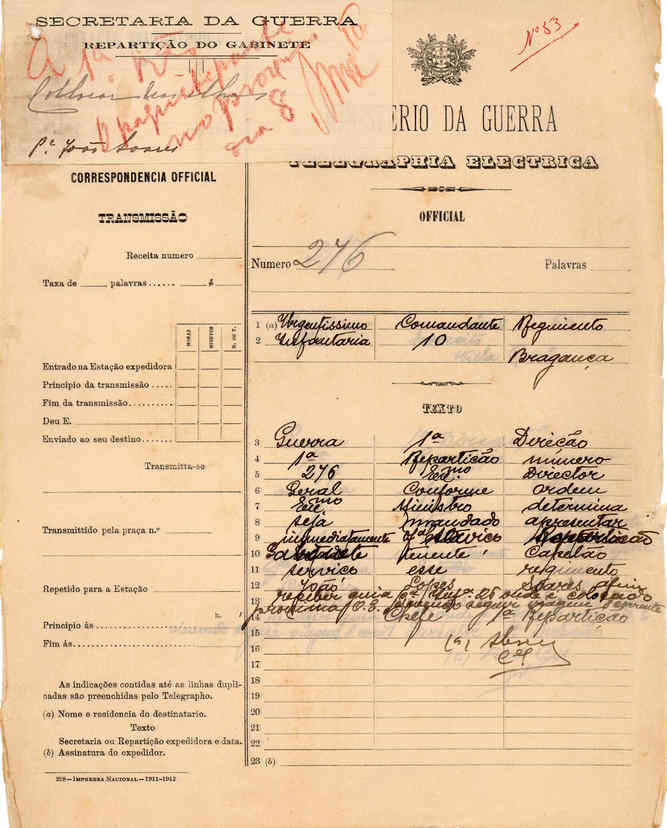 SECRETARIA DA GUERRA
REPARTIÇÃO DO GABINETE
A 1ª Rão
no proximo
dia 8
Pe João Soares
Nº 53
TERIO DA GUERRA
TELEGRAPHIA ELECTRICA
OFFICIAL
CORRESPONDENCIA OFFICIAL
TRANSMISSÃO
Receita numero
Taxa de palavras ...... $
HORAS MINUTOS M. OU T.
Entrado na Estação expedidora
Principio da transmissão .....
Fim da transmissão.......
Deu E. ..........
Enviado ao seu destino.......
Transmitta-se
Transmittido pela praça n.º
Repetido para a Estação
Principio ás
Fim ás
As indicações contidas até as linhas dupli-
cadas são preenchidas pelo Telegrapho.
(a) Nome e residencia do destinatario.
Texto
Secretaria ou Repartição expedidora e data.
(b) Assinatura do expedidor.
228—IMPRENSA NACIONAL—1911-1912
Numero 276 Palavras
1 (a) Urgentissimo Comandante Regimento
2 Infantaria 10
Bragança
TEXTO
3 Guerra 1ª Direcão
4 1ª Repartição numero
5 276 Exmo Director
6 Geral Conforme ordem
7 Exmo Ministro determina
8 seja mandado apresentar
9 immediatamente
10 tenente Capelão
11 serviço esse regimento
12 João Lopes Soares afim
13 receber guia
14 proxima O.E. seguir
15 Chefe 1ª Repartição
16 (a)
17 Cel
18
19
20
21
22
23 (b)